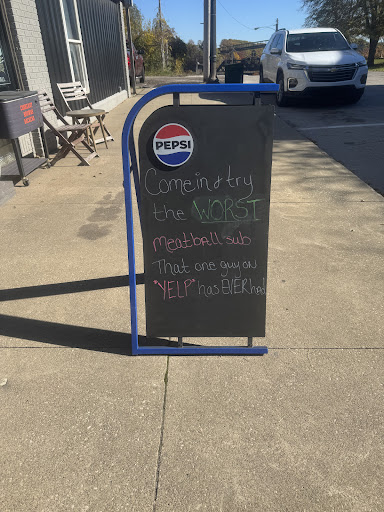 PEPSI
Come in & try
the WORST
meatball sub
That one guy on
"YELP" has EVER had